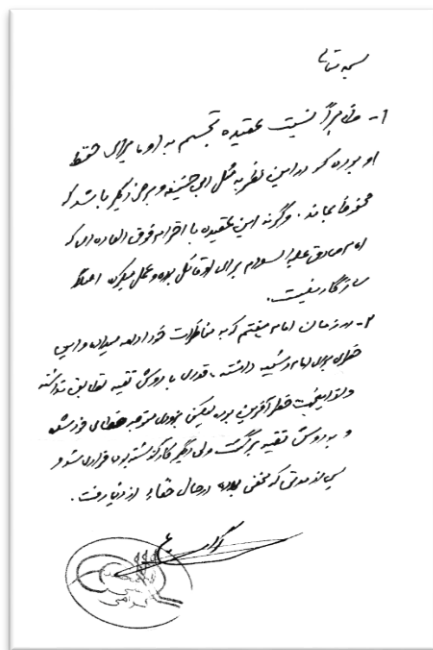 بسمه تعالی
۱- ظاهراً نسبت عقیده تجسم به او برای حفظ
او بوده که در این نظر به مثل ابی حنیفه و برخی دیگر باشد که
محفوظ بماند. وگرنه این عقیده با احترام فوق العاده‌ای که
امام صادق علیه السلام برای او قائل بوده و عمل میکرد اصلاً
سازگار نیست.
۲- در زمان امام هفتم که به مناظرات خود ادامه میداد و این
خطری برای امام و شیعه داشته، قدری با روش تقیه تطابق نداشته
و لذا خطر آفرین بوده لیکن بزودی متوجه خطای خود شد
و به روش تقیه برگشت ولی دیگر کار گذشته بود فراری شد و
پس از مدتی که مخفی بود در حال خفاء از دنیا رفت.